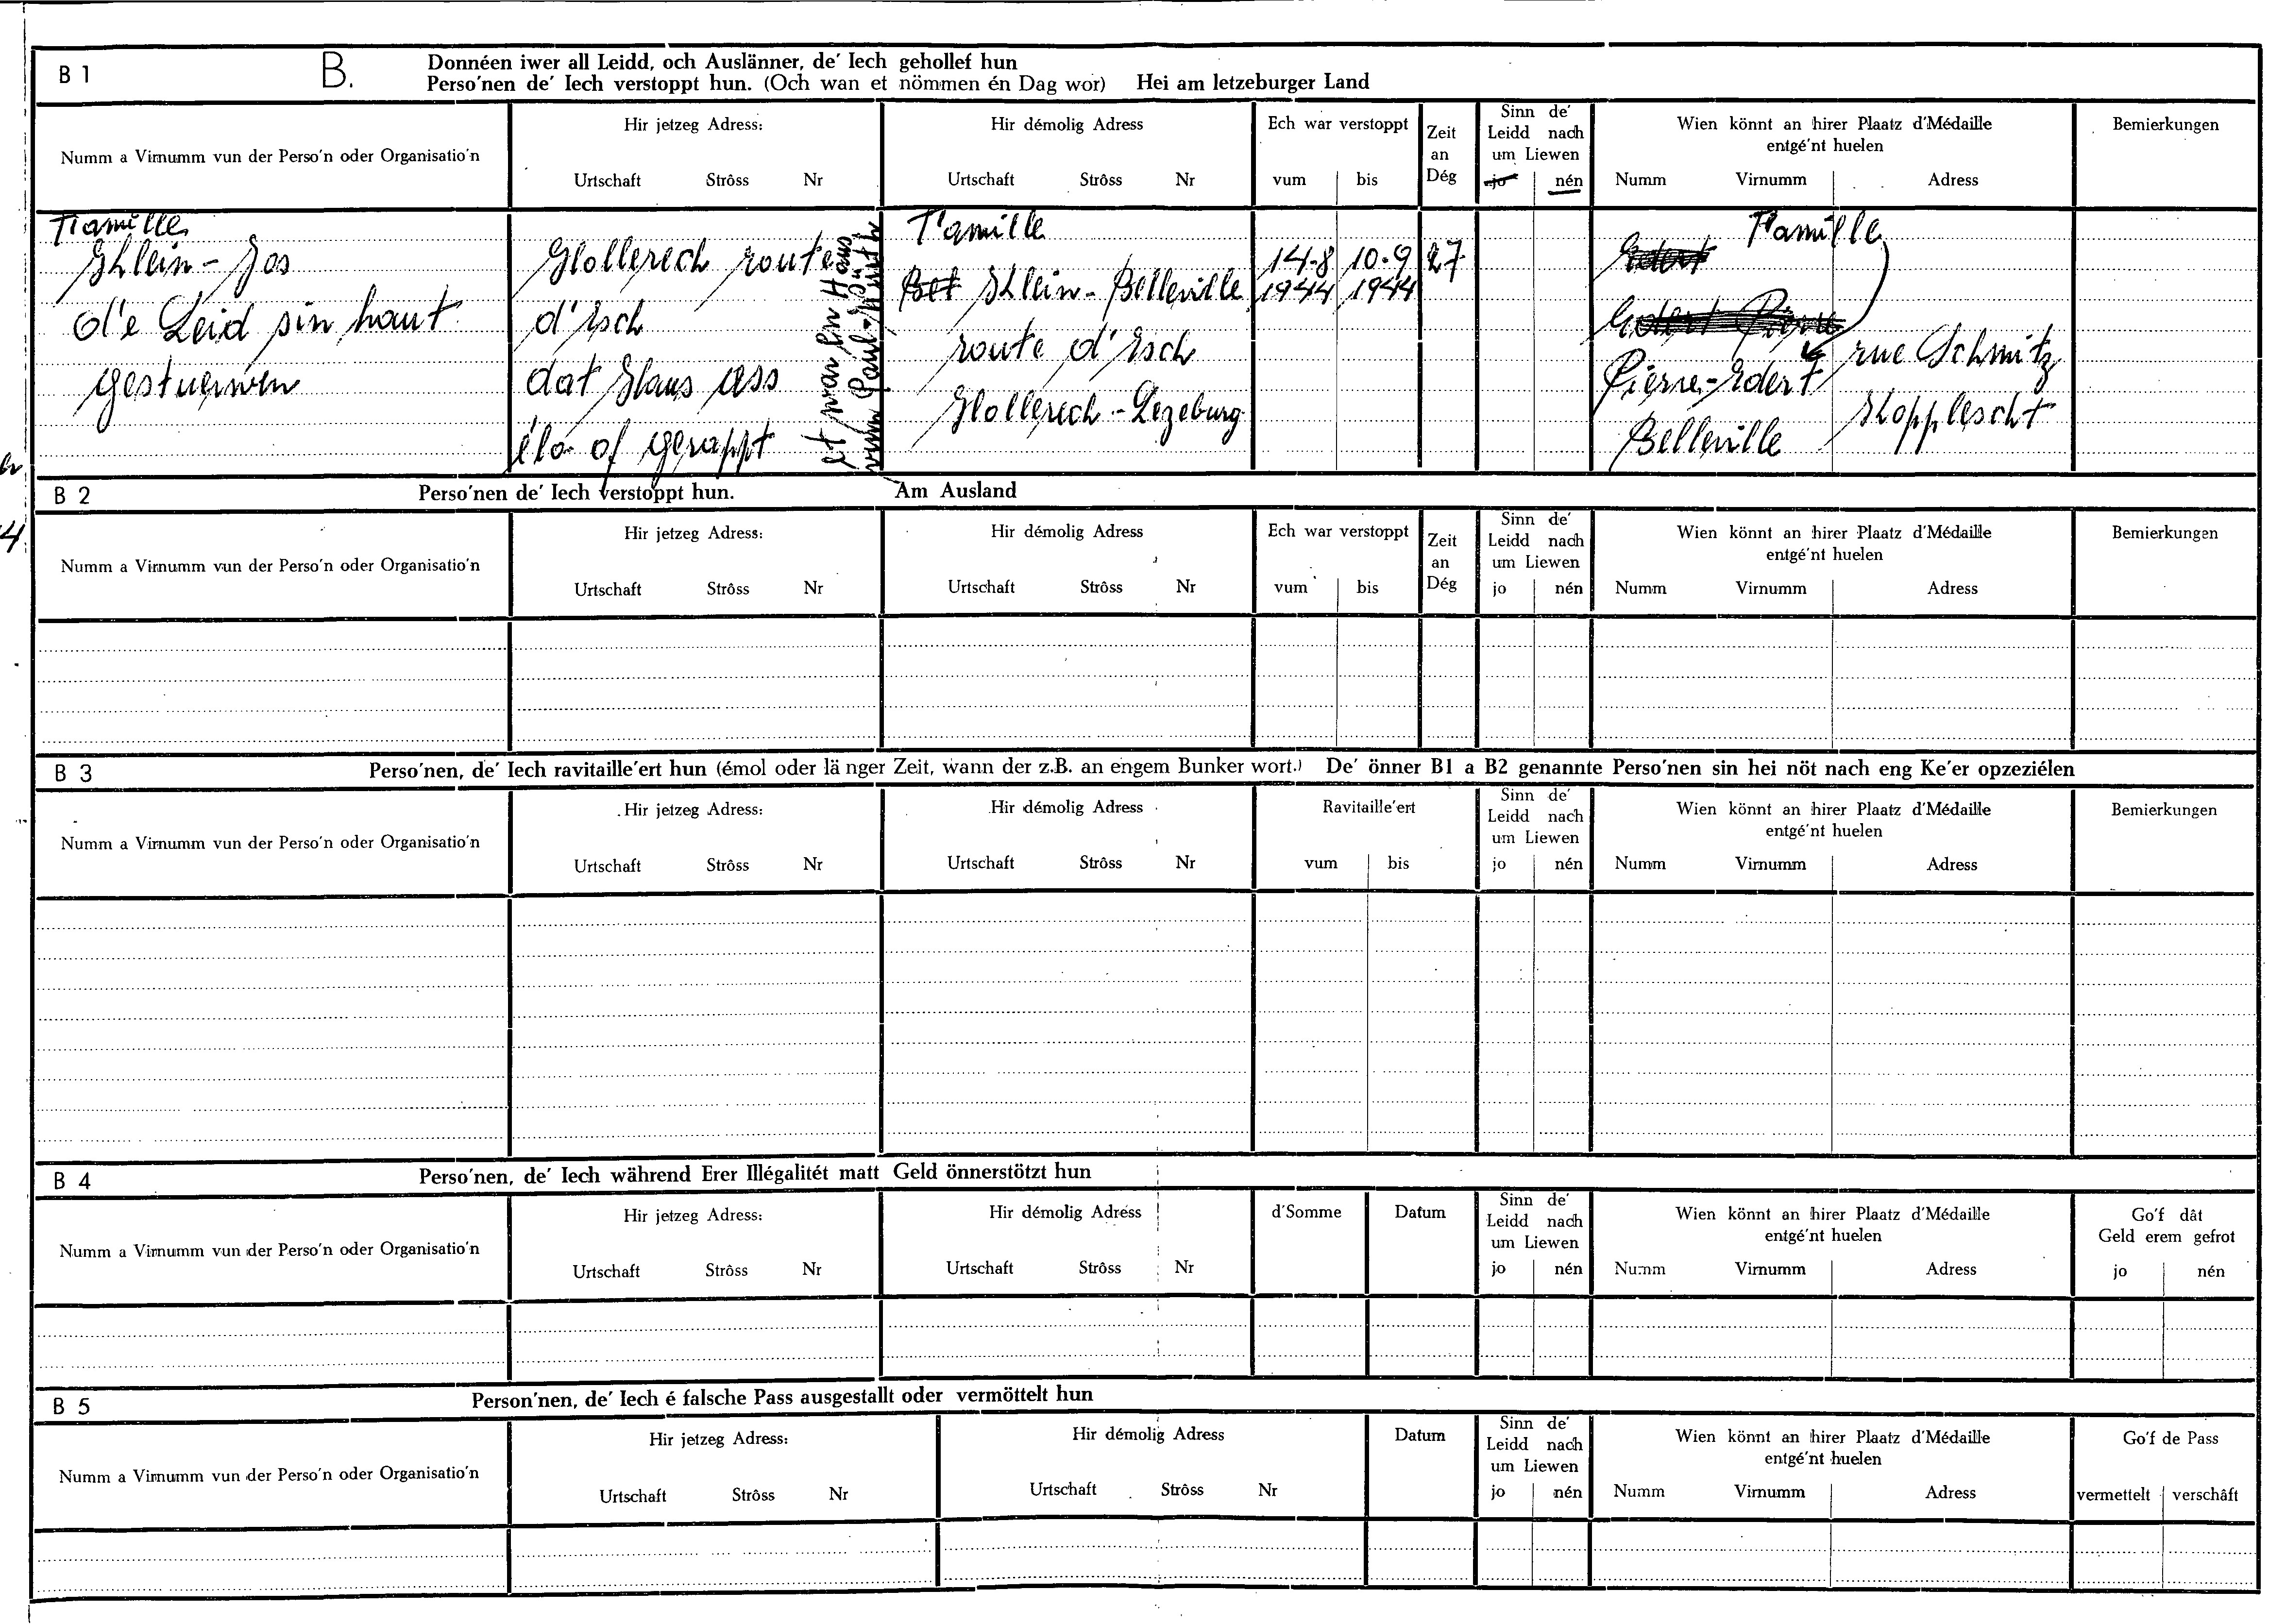 B 1 B. Donnéen iwer all Leidd, och Auslänner, de' Iech gehollef hun
Perso'nen de' Iech verstoppt hun. (Och wan et nömmen én Dag wor) Hei am letzeburger Land
Numm a Virnumm vun der Perso'n oder Organisatio'n
Hir jetzeg Adress:
Urtschaft Strôss Nr
Hir démolig Adress
Urtschaft Strôss Nr
Ech war verstoppt
vum bis
Zeit
an
Dég
Sinn de'
Leidd nach
um Liewen
jo nén
Wien könnt an hirer Plaatz d'Médaille
entgé'nt huelen
Numm Virnumm Adress
Bemierkungen
Famille
Klein - Jos
d'e Leid sin haut
gestuerwen
Hollerech route
d'Esch
dat Haus ass
élo of gerappt
Et war en Haus
vum Paul
Famille
Klein - Belleville
route d'Esch
Hollerech - Lezeburg
14-8 10-9 27
1944 1944
Famille
Pierre - Edert
Belleville
rue Schmitz
Kopplescht
B 2 Perso'nen de' Iech verstoppt hun. Am Ausland
Numm a Virnumm vun der Perso'n oder Organisatio'n
Hir jetzeg Adress:
Urtschaft Strôss Nr
Hir démolig Adress
Urtschaft Strôss Nr
Ech war verstoppt
vum bis
Zeit
an
Dég
Sinn de'
Leidd nach
um Liewen
jo nén
Wien könnt an hirer Plaatz d'Médaille
entgé'nt huelen
Numm Virnumm Adress
Bemierkungen
B 3 Perso'nen, de' Iech ravitaille'ert hun (émol oder länger Zeit, wann der z.B. an engem Bunker wort.) De' önner B1 a B2 genannte Perso'nen sin hei nöt nach eng Ke'er opzeziélen
Numm a Virnumm vun der Perso'n oder Organisatio'n
Hir jetzeg Adress:
Urtschaft Strôss Nr
Hir démolig Adress
Urtschaft Strôss Nr
Ravitaille'ert
vum bis
Sinn de'
Leidd nach
um Liewen
jo nén
Wien könnt an hirer Plaatz d'Médaille
entgé'nt huelen
Numm Virnumm Adress
Bemierkungen
B 4 Perso'nen, de' Iech während Erer Illégalitét matt Geld önnerstötzt hun
Numm a Virnumm vun der Perso'n oder Organisatio'n
Hir jetzeg Adress:
Urtschaft Strôss Nr
Hir démolig Adress
Urtschaft Strôss Nr
d'Somme
Datum
Sinn de'
Leidd nach
um Liewen
jo nén
Wien könnt an hirer Plaatz d'Médaille
entgé'nt huelen
Numm Virnumm Adress
Go'f dât
Geld erem gefrot
jo nén
B 5 Person'nen, de' Iech é falsche Pass ausgestallt oder vermöttelt hun
Numm a Virnumm vun der Perso'n oder Organisatio'n
Hir jetzeg Adress:
Urtschaft Strôss Nr
Hir démolig Adress
Urtschaft Strôss Nr
Datum
Sinn de'
Leidd nach
um Liewen
jo nén
Wien könnt an hirer Plaatz d'Médaille
entgé'nt huelen
Numm Virnumm Adress
Go'f de Pass
vermettelt verschâft